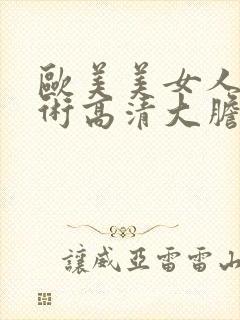 歐美美女人
術高清大膽
讓威亞雷雷山